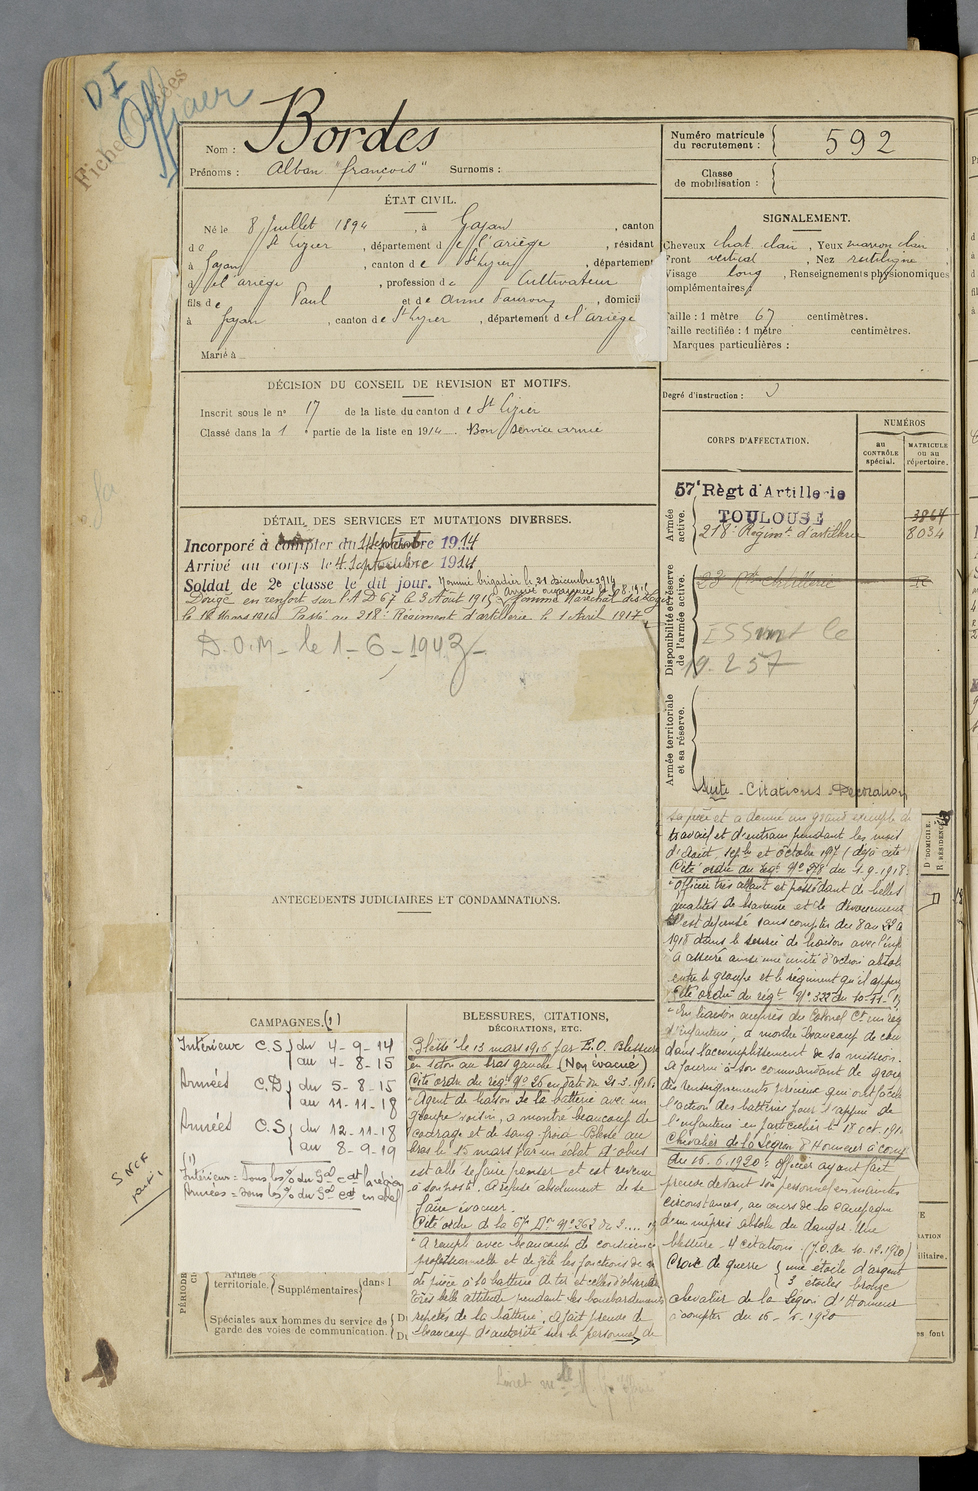 DI
Officier
Fiches
Nom : Bordes
Prénoms : Alban "françois" Surnoms :
Numéro matricule du recrutement : 592
Classe de mobilisation :
ÉTAT CIVIL.
Né le 8 Juillet 1894, à Gajan, canton
de St Lizier, département de l'ariège, résidant
à Gajan, canton de St Lizier, département
d l'ariège, profession de Cultivateur
fils de Paul et de anne, domicil
à Gajan, canton de St Lizier, département de l'ariège
Marié à
SIGNALEMENT.
Cheveux chat. clair, Yeux marron clair,
Front vertical, Nez rectiligne,
Visage long, Renseignements physionomiques
complémentaires :
Taille : 1 mètre 67 centimètres.
Taille rectifiée : 1 mètre centimètres.
Marques particulières :
Degré d'instruction : 3
DÉCISION DU CONSEIL DE REVISION ET MOTIFS.
Inscrit sous le n° 17 de la liste du canton de St Lizier
Classé dans la 1 e partie de la liste en 1914. Bon Service armé
CORPS D'AFFECTATION.
NUMÉROS
au CONTRÔLE spécial.
MATRICULE ou au répertoire.
Armée active.
57e Régt d'Artillerie
TOULOUSE
3864
218e Régimt d'artillerie 8034
Disponibilité et réserve de l'armée active.
23 Rt Artillerie
19.2 57
Armée territoriale et sa réserve.
DÉTAIL DES SERVICES ET MUTATIONS DIVERSES.
Incorporé à compter du 4 Septembre 1914
Arrivé au corps le 4 Septembre 1914
Soldat de 2e classe le dit jour. Nommé brigadier le 21 décembre 1914
Dirigé en renfort sur l'A D 67 le 3 Août 1915 Nommé Maréchal des logis
le 18 Mars 1916 Passé au 218e Régiment d'artillerie le 1 Avril 1917
D.O.M. le 1-6-1943
ANTECEDENTS JUDICIAIRES ET CONDAMNATIONS.
CAMPAGNES.(1)
Intérieur C.S { du 4-9-14
au 4-8-15
Armées C.D { du 5-8-15
au 11-11-18
Armées C.S { du 12-11-18
au 8-9-19
(1)
SNCF
PÉRIODE
Armée territoriale { Supplémentaires } dans l
Spéciales aux hommes du service de garde des voies de communication.
BLESSURES, CITATIONS,
DÉCORATIONS, ETC.
Blessé le 13 mars 1916 par E.O. Blessure
en séton au bras gauche (Non évacué)
Cité ordre du régt N° 26 en date du 21-3-1916.
"Agent de liaison de la batterie avec un
groupe voisin, a montré beaucoup de
courage et de sang froid. Blessé au
bras le 13 mars par un éclat d'obus
est allé se faire panser et est revenu
à son poste. A refusé absolument de se
faire évacuer.
Cité ordre de la 67e Don N° 262 du 2....
"A rempli avec beaucoup de conscience
professionnelle et de zèle les fonctions de
de pièce à la batterie de tir et celles d'observateur
Très belle attitude pendant les bombardements
répétés de la batterie, a fait preuve de
beaucoup d'autorité sur le personnel de
Suite - Citations - Décorations
sa pièce et a donné un grand exemple de
travail et d'entrain pendant les mois
d'Août, Septbre et Octobre 1917 (déjà cité
Cité ordre du régt N° 278 du 1-9-1918.
"Officier très allant et possédant de belles
qualités de bravoure et de dévouement
S'est dépensé sans compter du 8 au 22 a
1918 dans le service de liaison avec l'inf
A assuré ainsi une unité d'action absol
entre le groupe et le régiment qu'il appuy
Cité ordre du régt N° 322 du 10-11-1
"En liaison auprès du Colonel Ct un rég
d'infanterie, a montré beaucoup de cou
dans l'accomplissement de sa mission.
A fourni à son commandant de groupe
des renseignements précieux qui ont facilité
l'action des batteries pour l'appui de
l'infanterie en particulier le 18 oct. 191
Chevalier de la Légion d'Honneur à comp
du 16-6-1920 : officier ayant fait
preuve devant son personnel en maintes
circonstances, au cours de la campagne
d'un mépris absolu du danger. Une
blessure - 4 citations - (J.O. du 10-12-1920)
Croix de guerre { une étoile d'argent
3 étoiles bronze
chevalier de la Légion d'Honneur
à compter du 16-6-1920
D. DOMICILE.
R. RÉSIDENCE
D